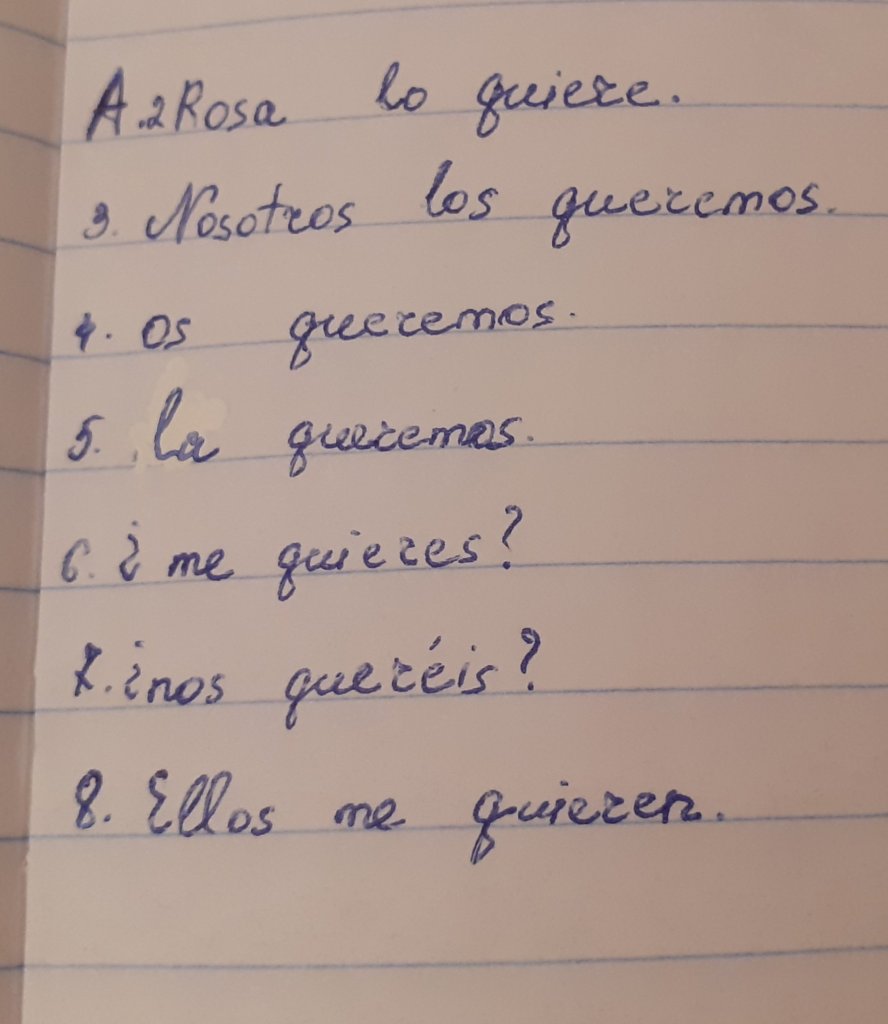 A.2 Rosa lo quiere.
3. Nosotros los queremos.
4. os queremos.
5. la queremos.
6. ¿me quieres?
7. ¿nos queréis?
8. Ellos me quieren.